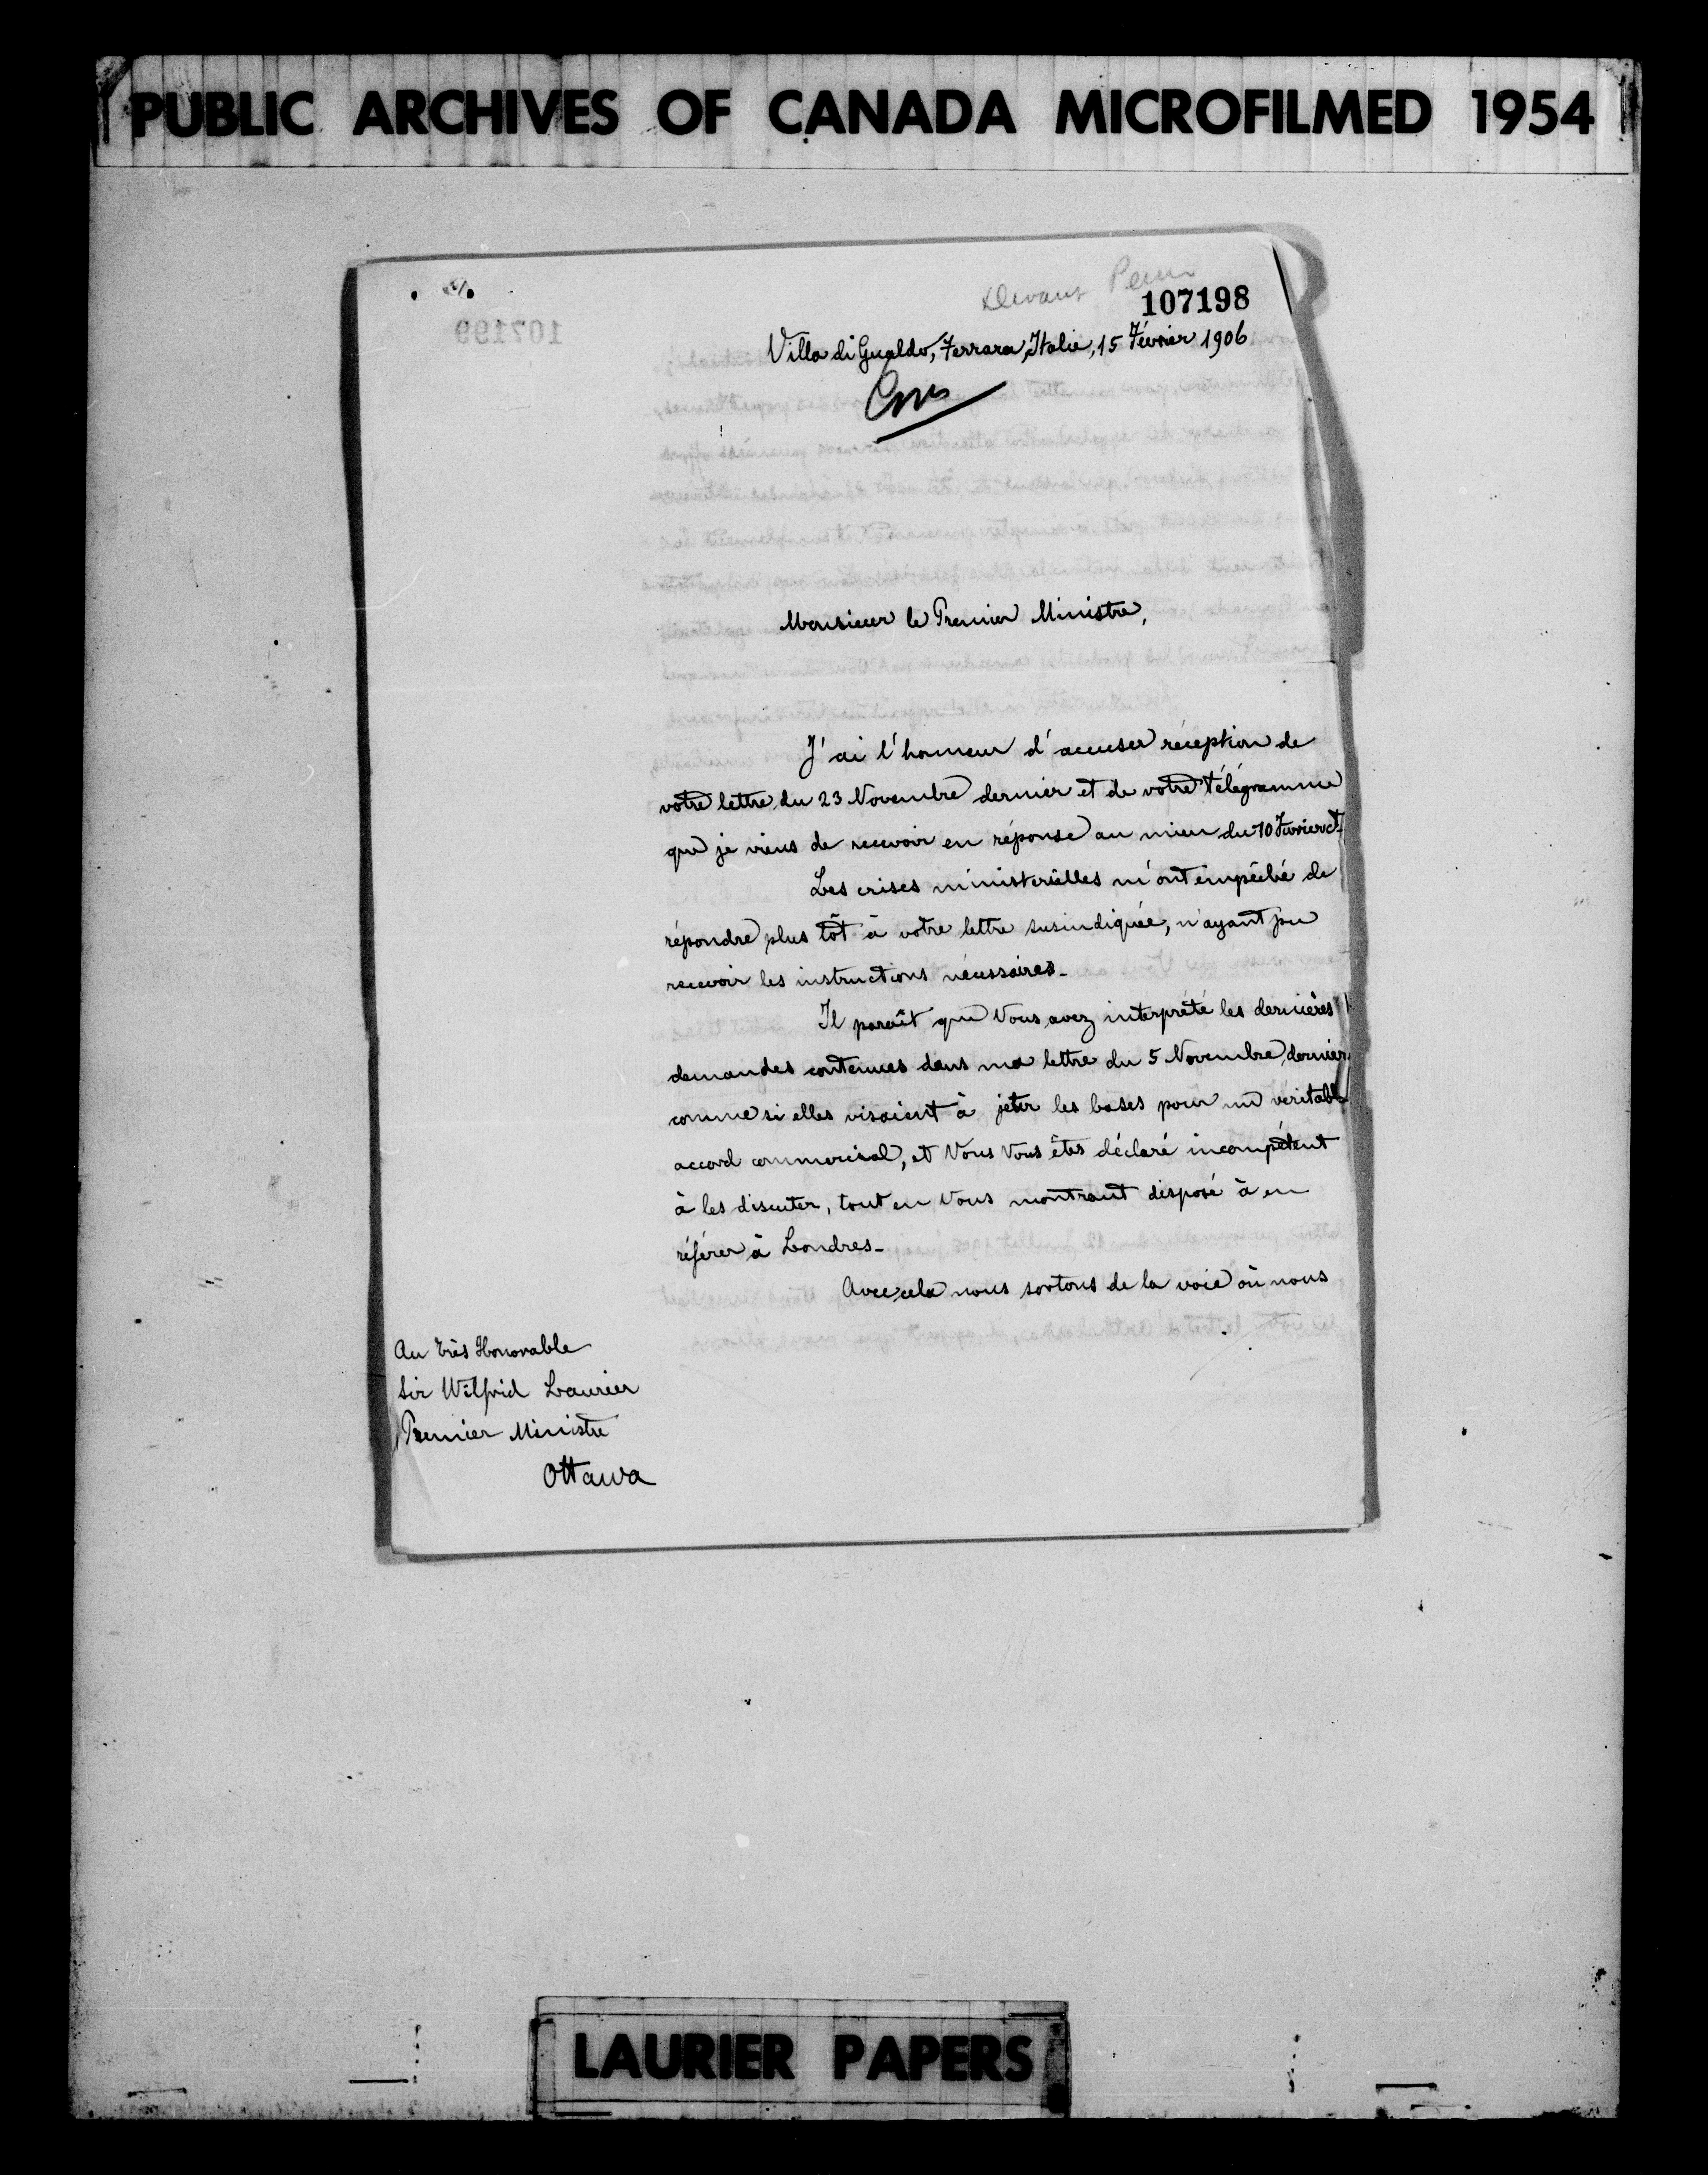 PUBLIC ARCHIVES OF CANADA MICROFILMED 1954
Devant
107198
Villa di Gualdo, Ferrara, Italie, 15 Février 1906
Monsieur le Premier Ministre,
J'ai l'honneur d'accuser réception de
votre lettre du 23 Novembre dernier et de votre télégramme
que je viens de recevoir en réponse au mien du 10 Février ct.
Les crises ministerielles m'ont empêché de
répondre plus tôt à votre lettre susindiquée, n'ayant pu
recevoir les instructions nécessaires-
Il paraît que Vous avez interprété les dernières
demandes contenues dans ma lettre du 5 Novembre dernier
comme si elles visaient à jeter les bases pour un véritable
accord commercial, et Vous Vous êtes déclaré incompétent
à les discuter, tout en Vous montrant disposé à en
référer à Londres-
Avec cela nous sortons de la voie où nous
Au très Honorable
Sir Wilfrid Laurier
Premier Ministre
Ottawa
LAURIER PAPERS